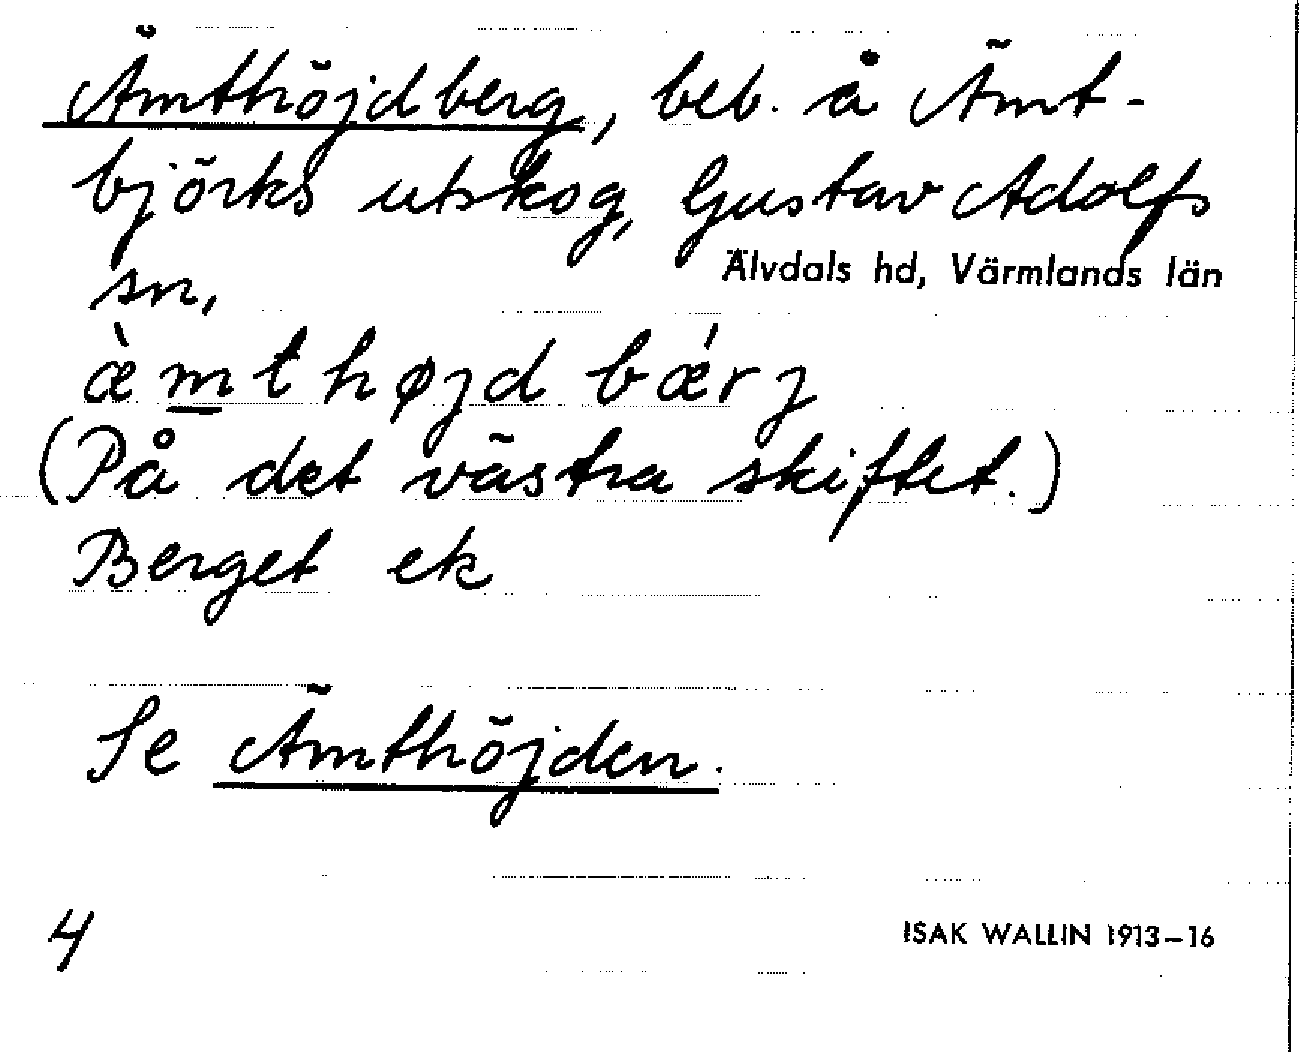 Ämthöjdberg, beb. å Ämt-
björks utskog, Gustav Adolfs
sn,
Älvdals hd, Värmlands län
æ̀m̲thøjd bǽrj
(På det västra skiftet.)
Berget ek
Se Ämthöjden.
4
ISAK WALLIN 1913–16